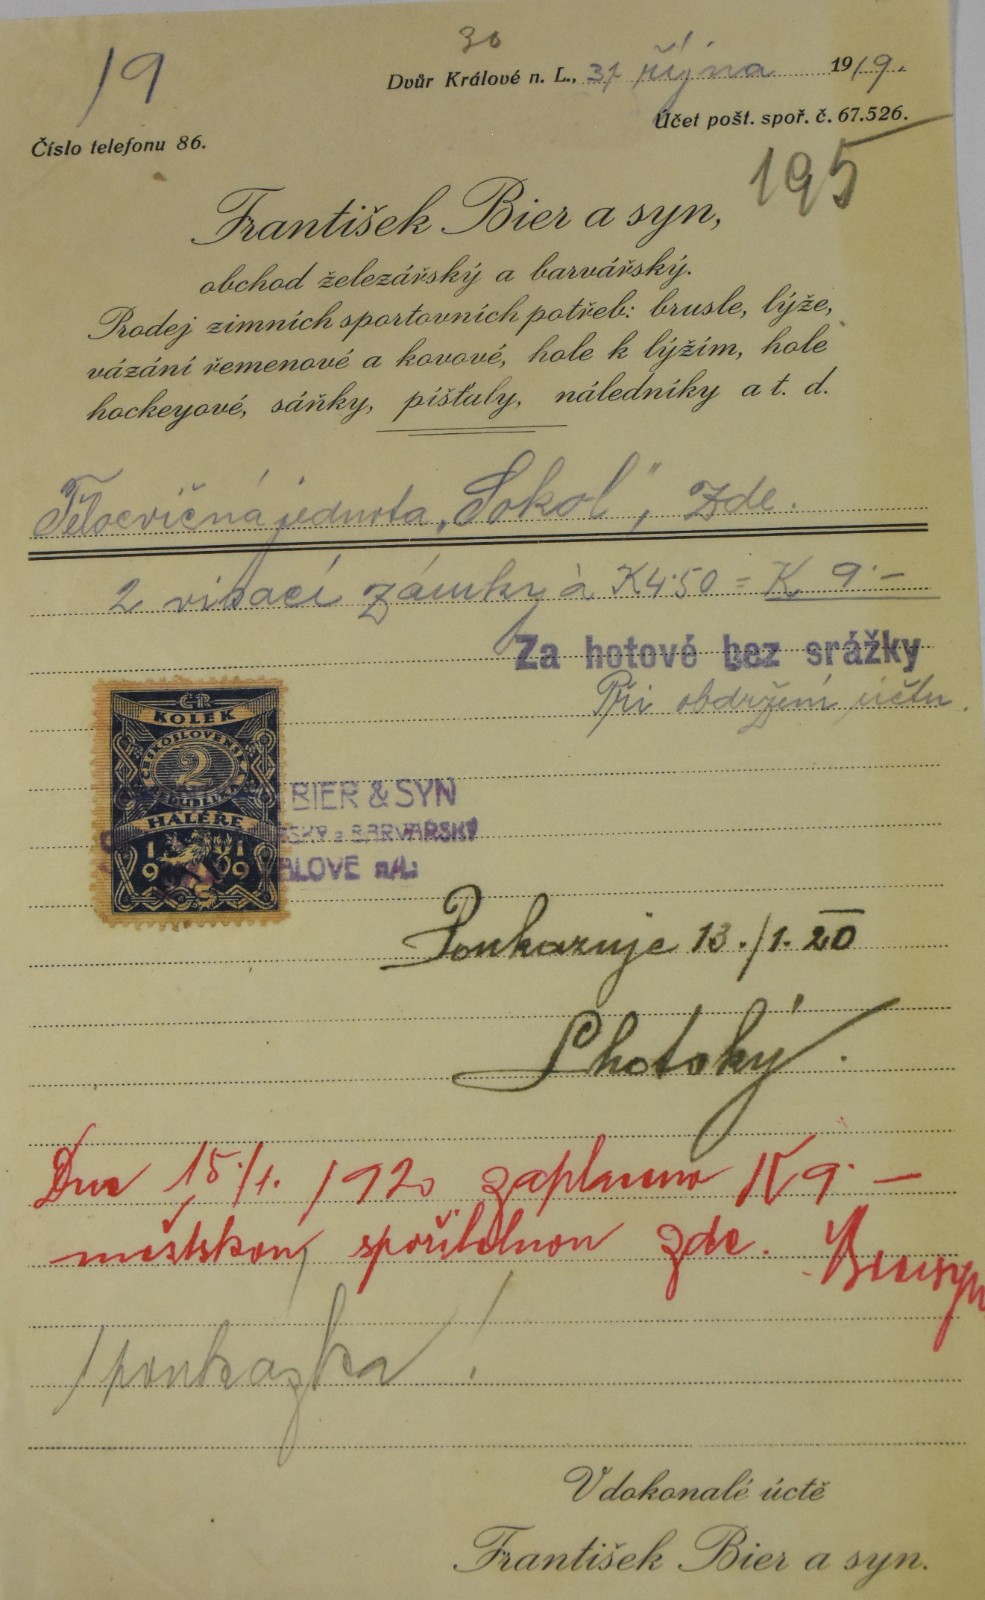 30
19
Dvůr Králové n. L., 31 října 1919.
Číslo telefonu 86.
Účet pošt. spoř. č. 67.526.
195
František Bier a syn,
obchod železářský a barvářský.
Prodej zimních sportovních potřeb: brusle, lýže,
vázání řemenové a kovové, hole k lýžím, hole
hockeyové, sáňky, píšťaly, náledníky a t. d.
Tělocvičná jednota „Sokol", Zde.
2 visací zámky à K 4·50 = K 9·—
Za hotové bez srážky
Při obdržení účtu.
ČR
KOLEK
ČESKOSLOVENSKÁ
2
REPUBLIKA
HALÉŘE
1919
BIER & SYN
SKÝ a BARVÁŘSKÝ
ÁLOVÉ n/L.
Poukazuje 13./1. 20
Lhotský.
Dne 15./1. 1920 zaplaceno K 9·—
městskou spořitelnou zde. Bier syn
/poukázka/
V dokonalé úctě
František Bier a syn.